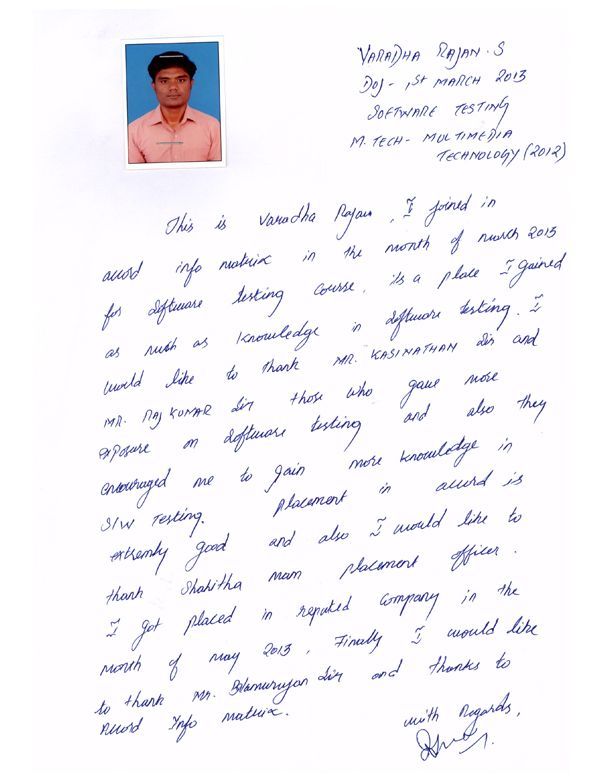 VARADHA RAJAN.S
DOJ- 1st MARCH 2013
SOFTWARE TESTING
M.TECH- MULTIMEDIA
TECHNOLOGY (2012)
This is Varadha Rajan, I joined in
accord info matrix in the month of march 2013
for software testing course. its a place I gained
as much as knowledge in software testing. I
would like to thank MR. KASINATHAN sir and
MR. RAJ KUMAR sir those who gave more
exposure on software testing and also they
encouraged me to gain more knowledge in
S/W Testing. Placement in accord is
extremly good and also I would like to
thank Shakitha mam placement officer.
I got placed in reputed company in the
month of may 2013, Finally I would like
to thank Mr. Balamurugan sir and thanks to
Accord Info matrix.
with Regards,